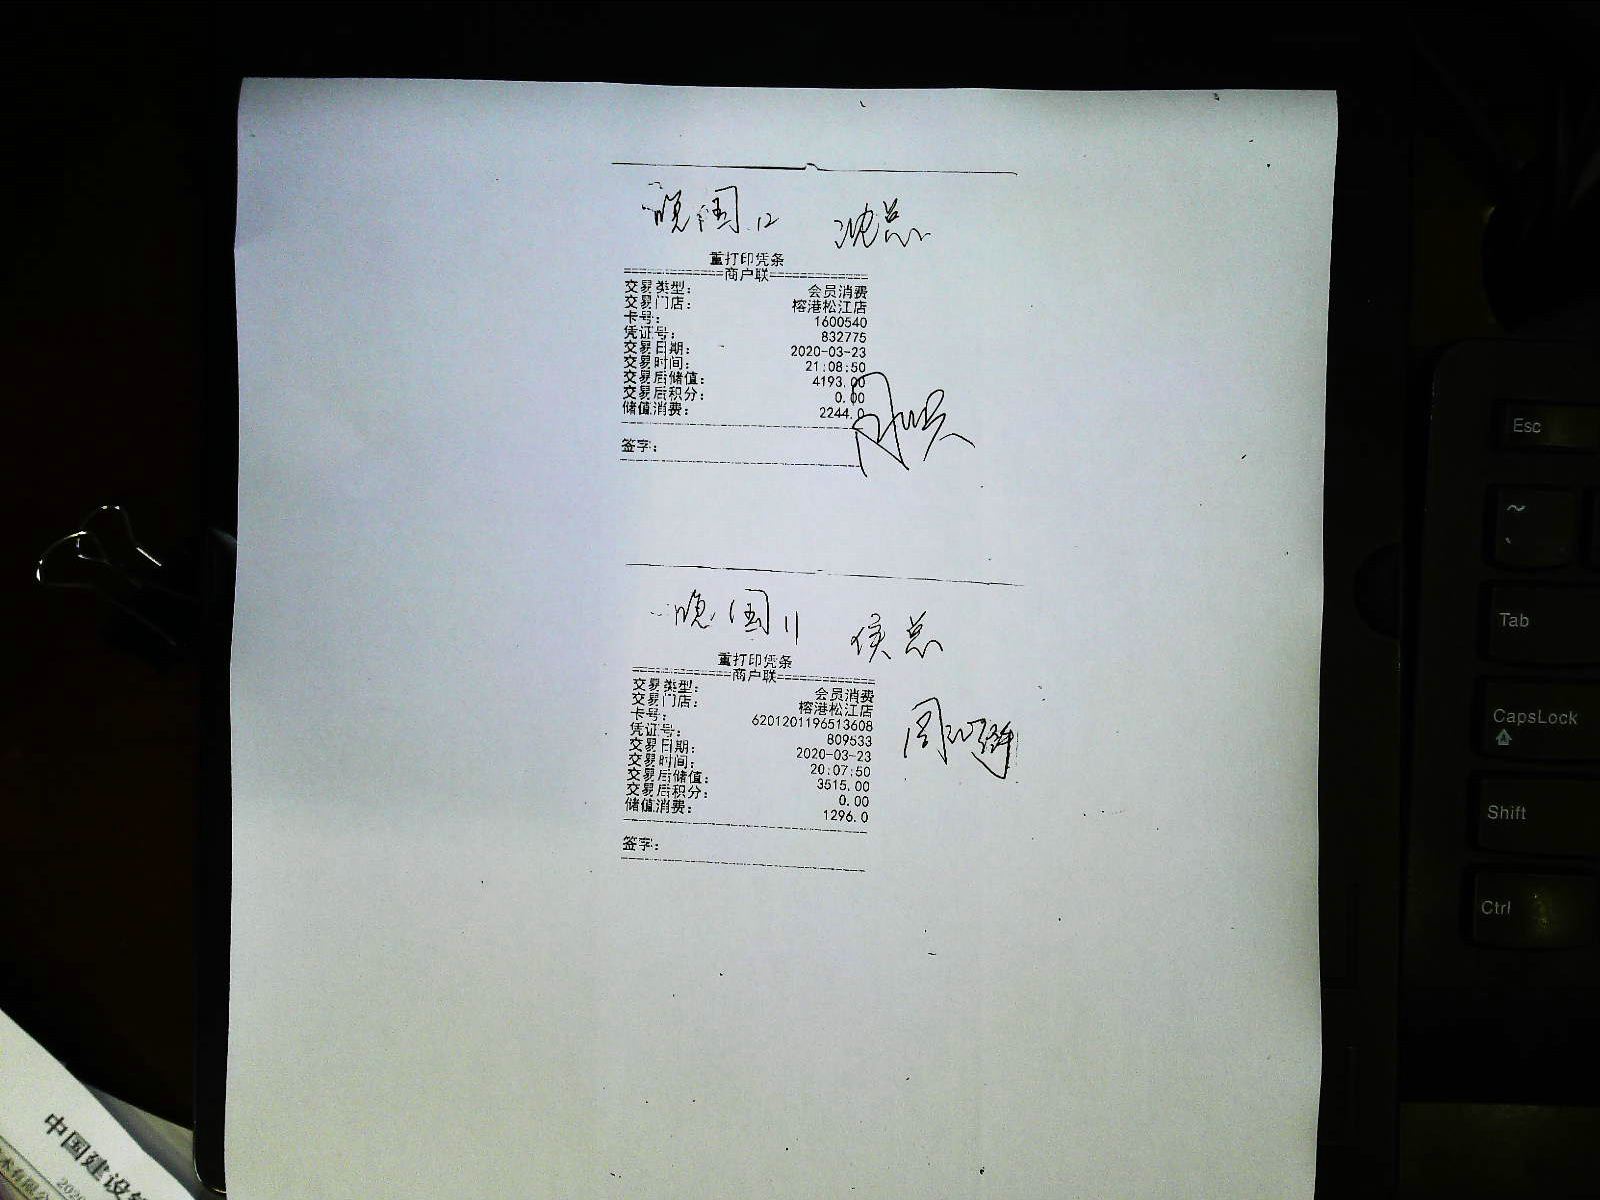 晚 国 12 沈总
重打印凭条
=============商户联=============
交易类型： 会员消费
交易门店： 榕港松江店
卡号： 1600540
凭证号： 832775
交易日期： 2020-03-23
交易时间： 21:08:50
交易后储值： 4193.00
交易后积分： 0.00
储值消费： 2244.0
签字：
晚 国 11 侯总
重打印凭条
=============商户联=============
交易类型： 会员消费
交易门店： 榕港松江店
卡号： 6201201196513608
凭证号： 809533
交易日期： 2020-03-23
交易时间： 20:07:50
交易后储值： 3515.00
交易后积分： 0.00
储值消费： 1296.0
签字：
Esc
~
Tab
CapsLock
Shift
Ctrl
中国建设
术有限公
2020